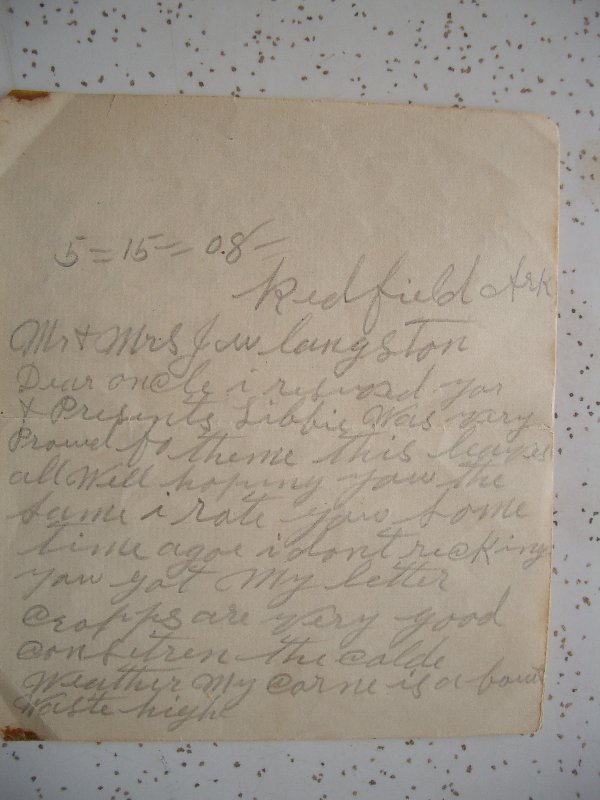 5=15=08-
Redfield Ark
Mr & Mrs J W langston
Dear oncle i resived you
& Presents Libbie Was very
Prowd fo theme this leaves
all Well hoping you the
same i rote you some
time agoe i dont recking
you got My letter
cropps are very good
consitren the colde
Weather My Corne is a bout
Waste high